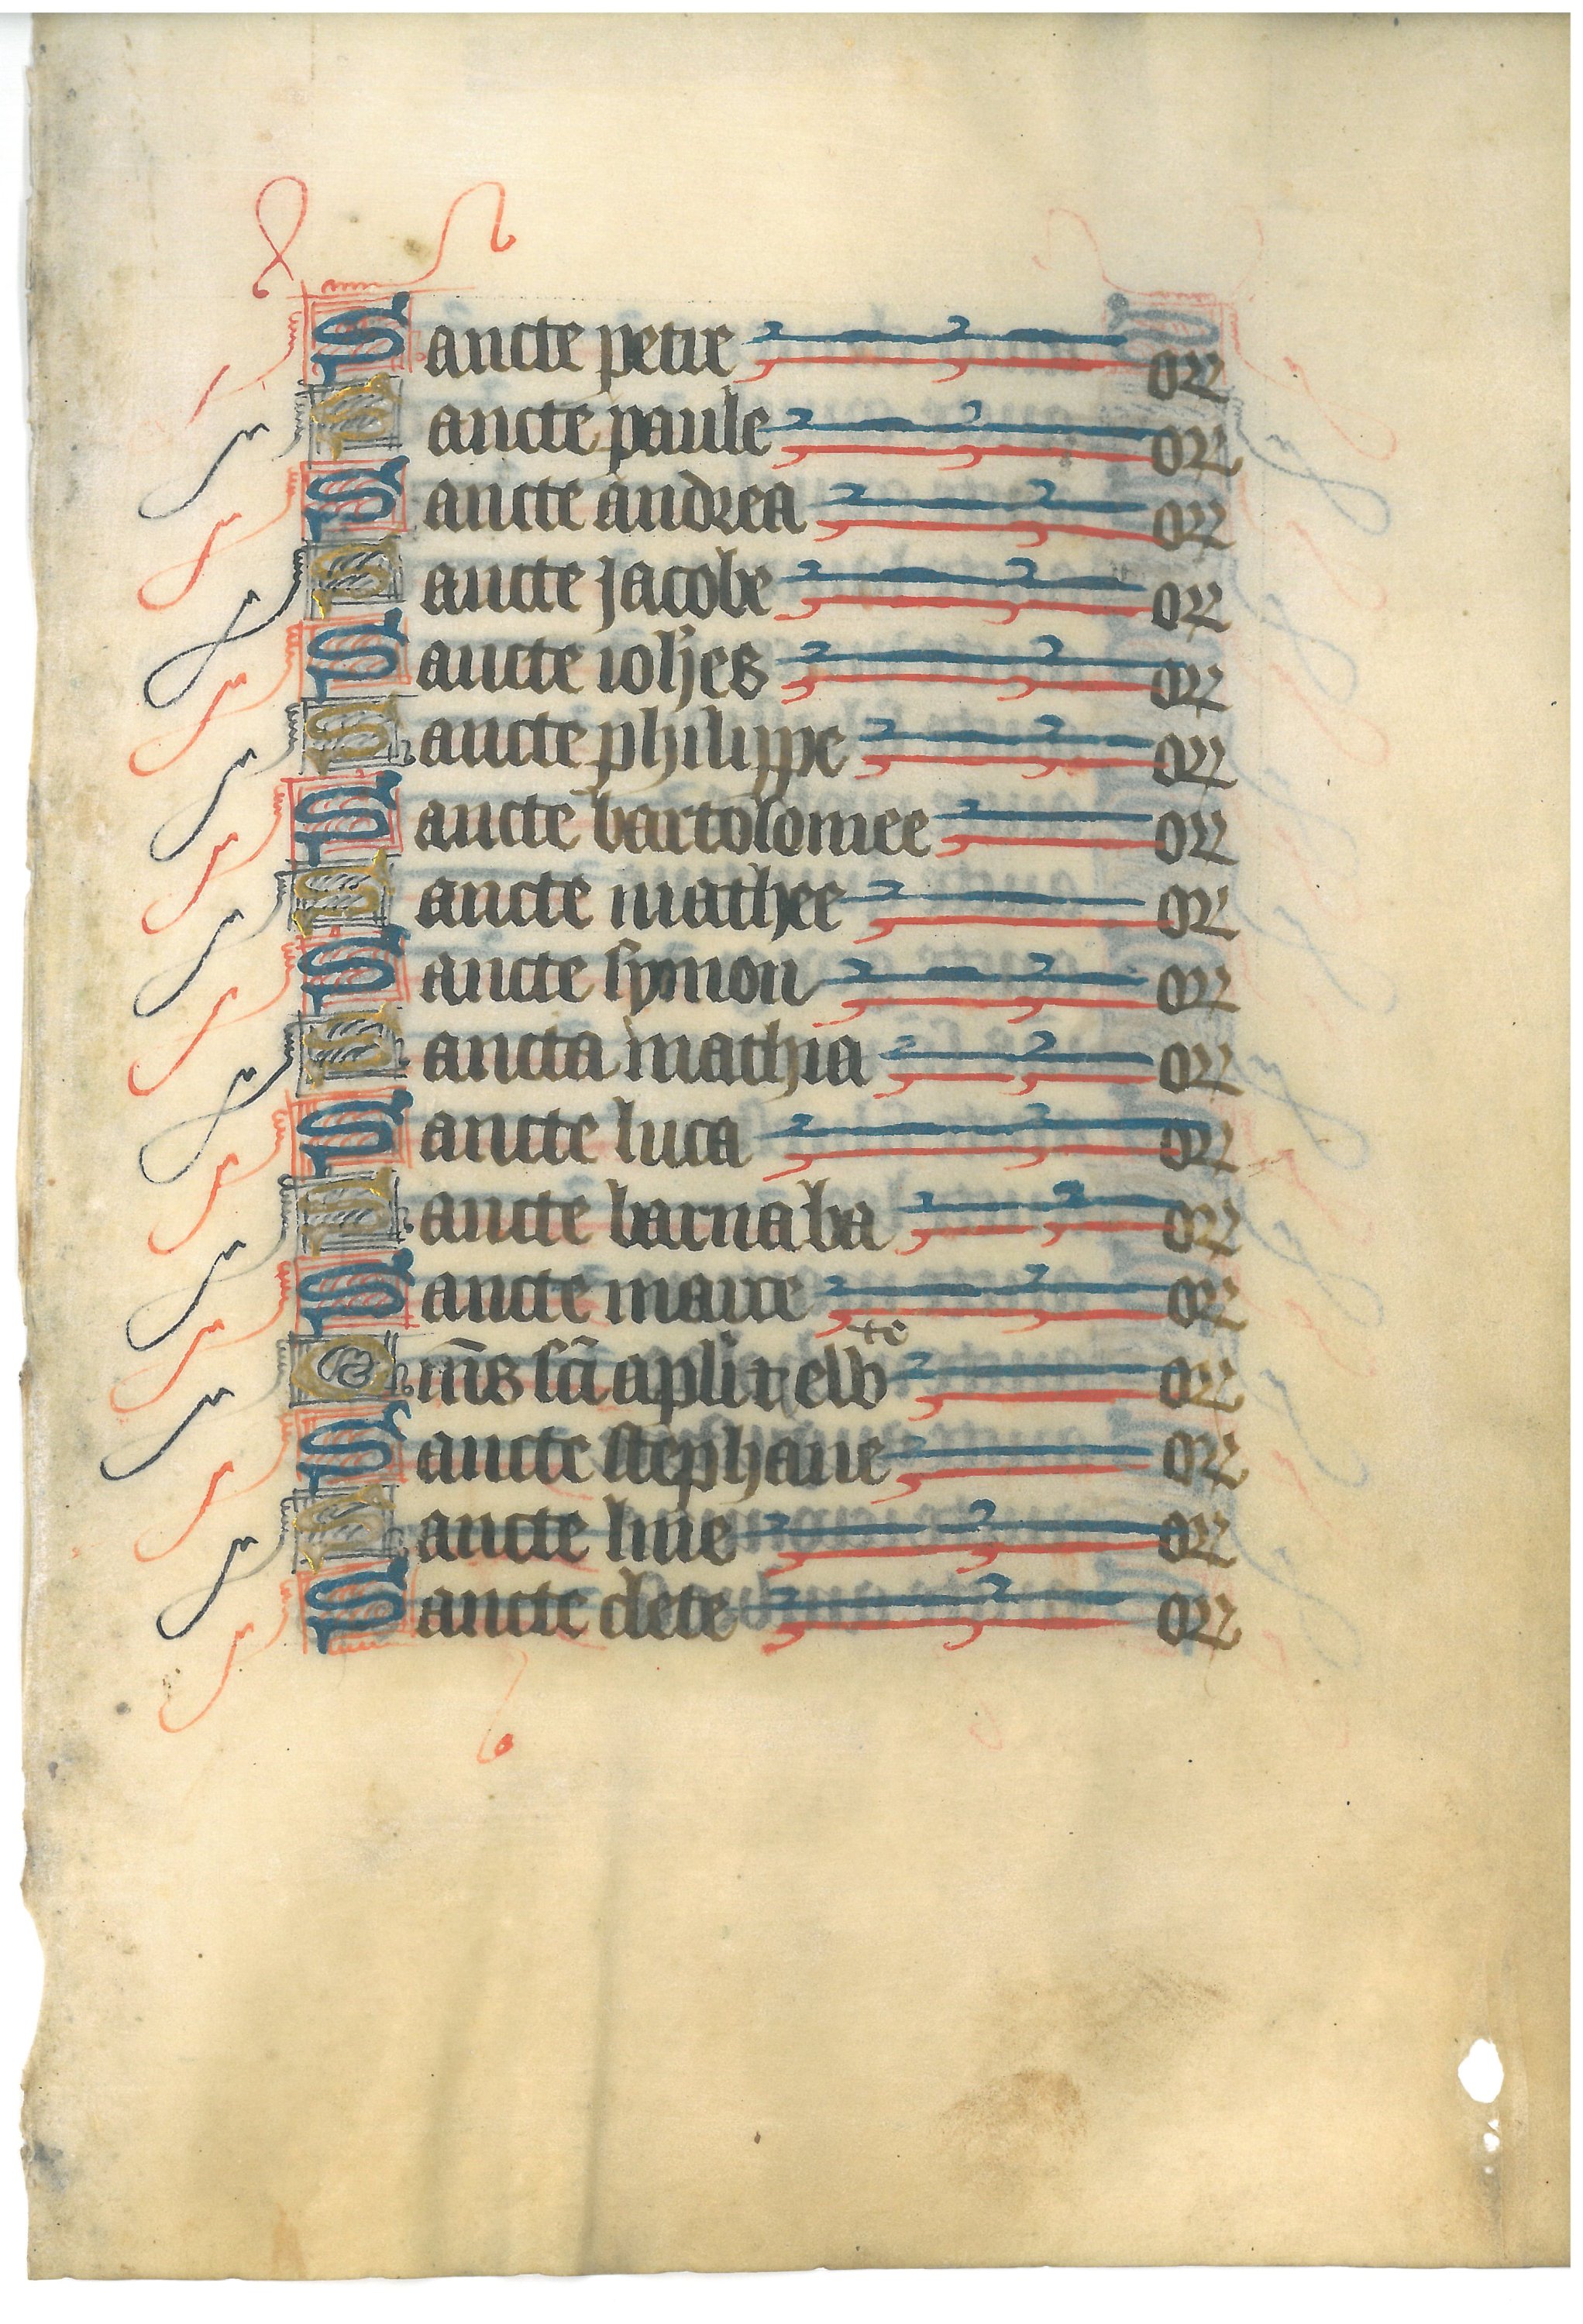 Sancte petre or
Sancte paule or
Sancte andrea or
Sancte Jacobe or
Sancte ioh̄es or
Sancte philippe or
Sancte bartolomee or
Sancte mathee or
Sancte symon or
Sancta mathia or
Sancte luca or
Sancte barnaba or
Sancte marce or
Om̄s sc̄i apl̄i ⁊ elb̄te or
Sancte stephane or
Sancte line or
Sancte clete or